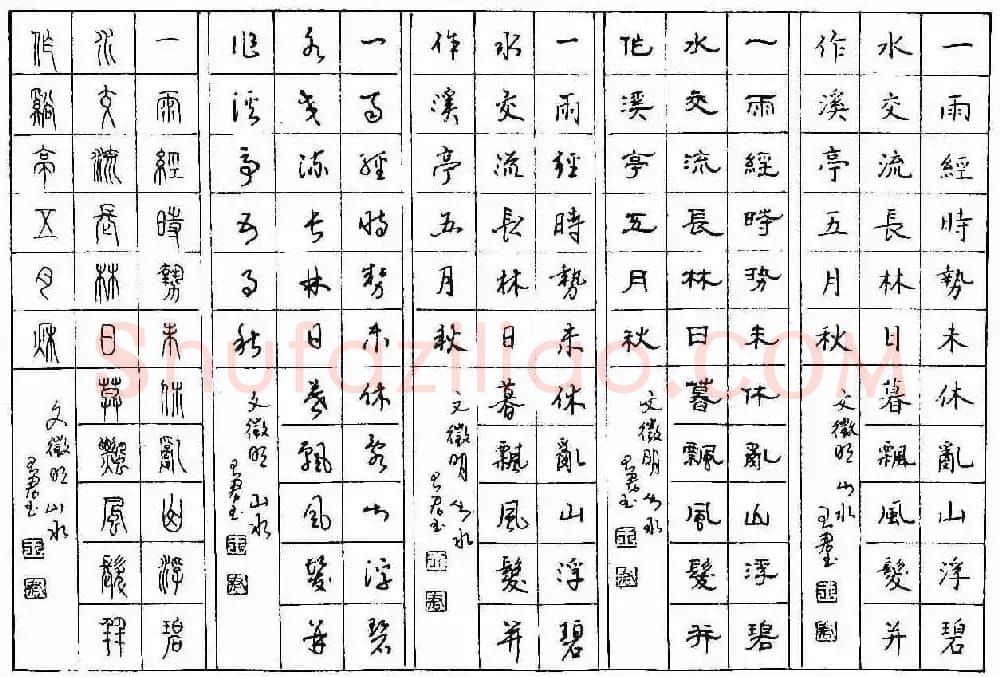 一雨經時勢未休亂山浮碧
水交流長林日暮飄風髮并
作溪亭五月秋
文徵明山水
一雨經時勢未休亂山浮碧
水交流長林日暮飄風髮并
作溪亭五月秋
文徵明山水
一雨經時勢未休亂山浮碧
水交流長林日暮飄風髮并
作溪亭五月秋
文徵明山水
一雨經時勢未休亂山浮碧
水交流長林日暮飄風髮并
作溪亭五月秋
文徵明山水
一雨經時勢未休亂山浮碧
水交流長林日暮飄風髮并
作谿亭五月秋
文徵明山水
Shufaziliao.COM